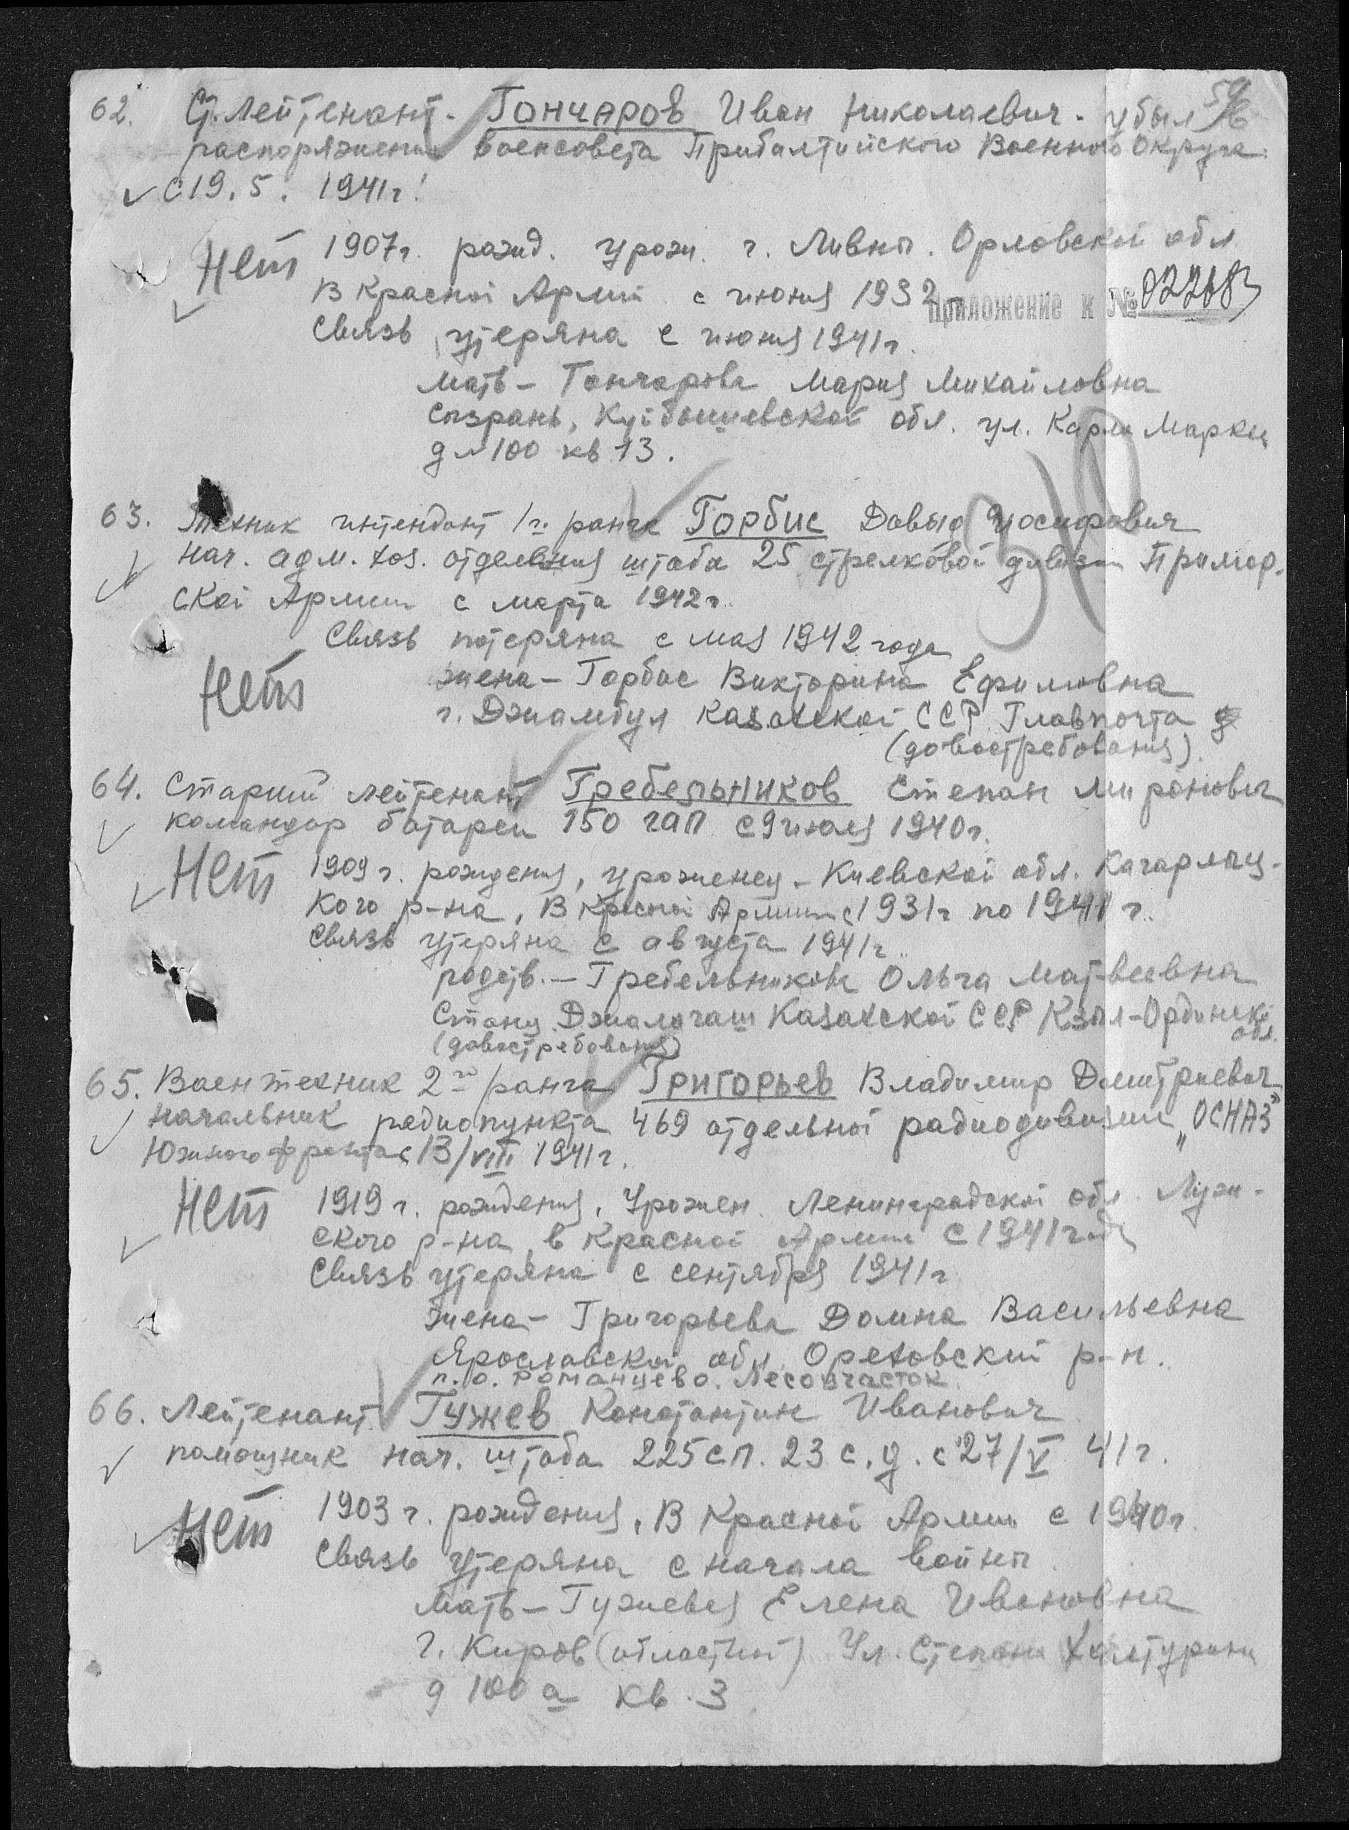 62. Ст. Лейтенант - Гончаров Иван Николаевич - убыл в
распоряжение военсовета Прибалтийского Военного Округа
с 19. 5. 1941г.
Нет 1907г. рожд. урож. г. Ливны. Орловской обл
В Красной Армии с июня 1932
Приложение к № 02268
Связь утеряна с июня 1941г.
Мать - Гончарова Мария Михайловна
Сызрань, Куйбышевской обл. ул. Карла Маркса
д 100 кв 13.
63. Техник интендант 1го ранга Горбис Давыд Иосифович
нач. адм. хоз. отделения штаба 25 стрелковой дивизии Примор-
ской Армии с марта 1942г.
Связь потеряна с мая 1942 года
Нет жена - Горбис Викторина Ефимовна
г. Джамбул Казахской ССР Главпочта
(довостребования)
64. Старший лейтенант Гребельников Степан Миронович
командир батареи 150 гап с 9 июля 1940г.
Нет 1909 г. рождения, уроженец - Киевской обл. Кагарлыц-
кого р-на, В Красной Армии с 1931г по 1941 г.
Связь утеряна с августа 1941г.
родств. - Гребельникова Ольга Матвеевна
Станц. Джалагаш Казахской ССР Кзыл-Ординской
обл.
(довостребования)
65. Воентехник 2го ранга Григорьев Владимир Дмитриевич
начальник радиопункта 469 отдельной радиодивизии „ОСНАЗ"
Южного фронта с 13/VIII 1941г.
Нет 1919 г. рождения, Урожен. Ленинградской обл. Луж-
ского р-на, в Красной Армии с 1941 года
Связь утеряна с сентября 1941г
жена - Григорьева Домна Васильевна
Ярославской обл. Ореховский р-н.
п.о. Романцево. Лесоучасток
66. Лейтенант Гужев Константин Иванович
помощник нач. штаба 225 сп. 23 с.д. с 27/V 41г.
Нет 1903 г. рождения, В Красной Армии с 1940г.
Связь утеряна с начала войны
Мать - Гужева Елена Ивановна
г. Киров (областной) Ул. Степана Халтурина
д 100 а кв. 3